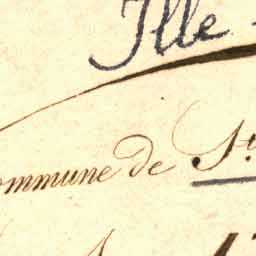 Ille
ommune de St